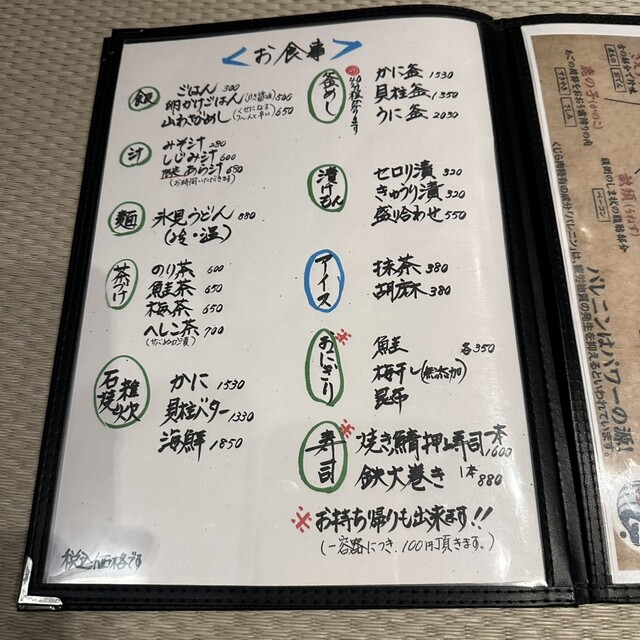 お食事
飯
ごはん 300
卵かけごはん 500
山わさびめし 650
汁
みそ汁 280
しじみ汁 600
あら汁 650
(お時間いただきます)
麺
氷見うどん 880
(冷・温)
茶づけ
のり茶 600
鮭茶 650
梅茶 650
へしこ茶 700
石焼雑炊
かに 1530
貝柱バター 1330
海鮮 1850
税込価格です
釜めし
かに釜 1530
貝柱釜 1350
うに釜 2030
漬けもん
セロリ漬 320
きゅうり漬 320
盛り合わせ 550
アイス
抹茶 380
胡麻 380
※
おにぎり
鮭 各350
梅干し(無添加)
昆布
※
寿司
焼き鯖押し寿司 一本 1600
鉄火巻き 1本 880
※お持ち帰りも出来ます!!
(一容器につき、100円頂きます。)
バレニンはパワーの源!